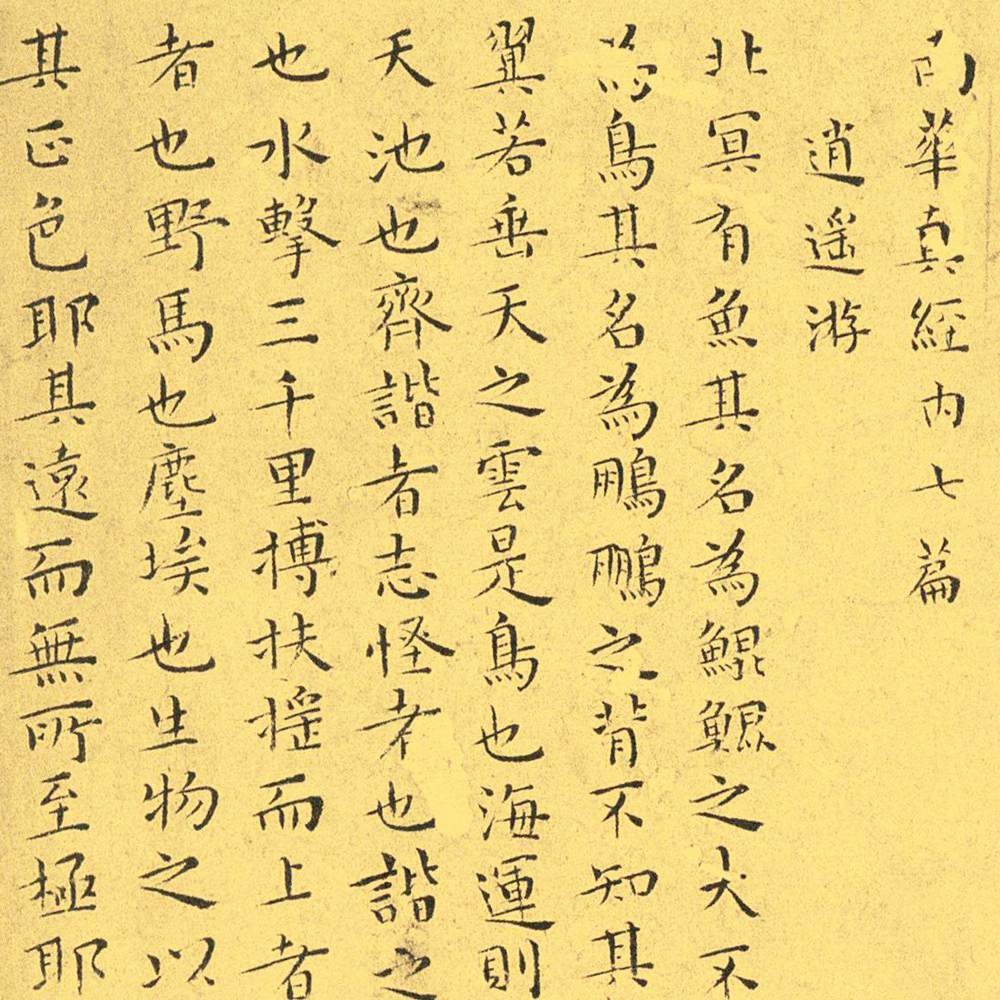 南華真經内七篇
逍遥游
北冥有魚其名為鯤鯤之大不
為鳥其名為鵬鵬之背不知其
翼若垂天之雲是鳥也海運則
天池也齊諧者志怪者也諧之
也水擊三千里搏扶搖而上者
者也野馬也塵埃也生物之以
其正色耶其遠而無所至極耶